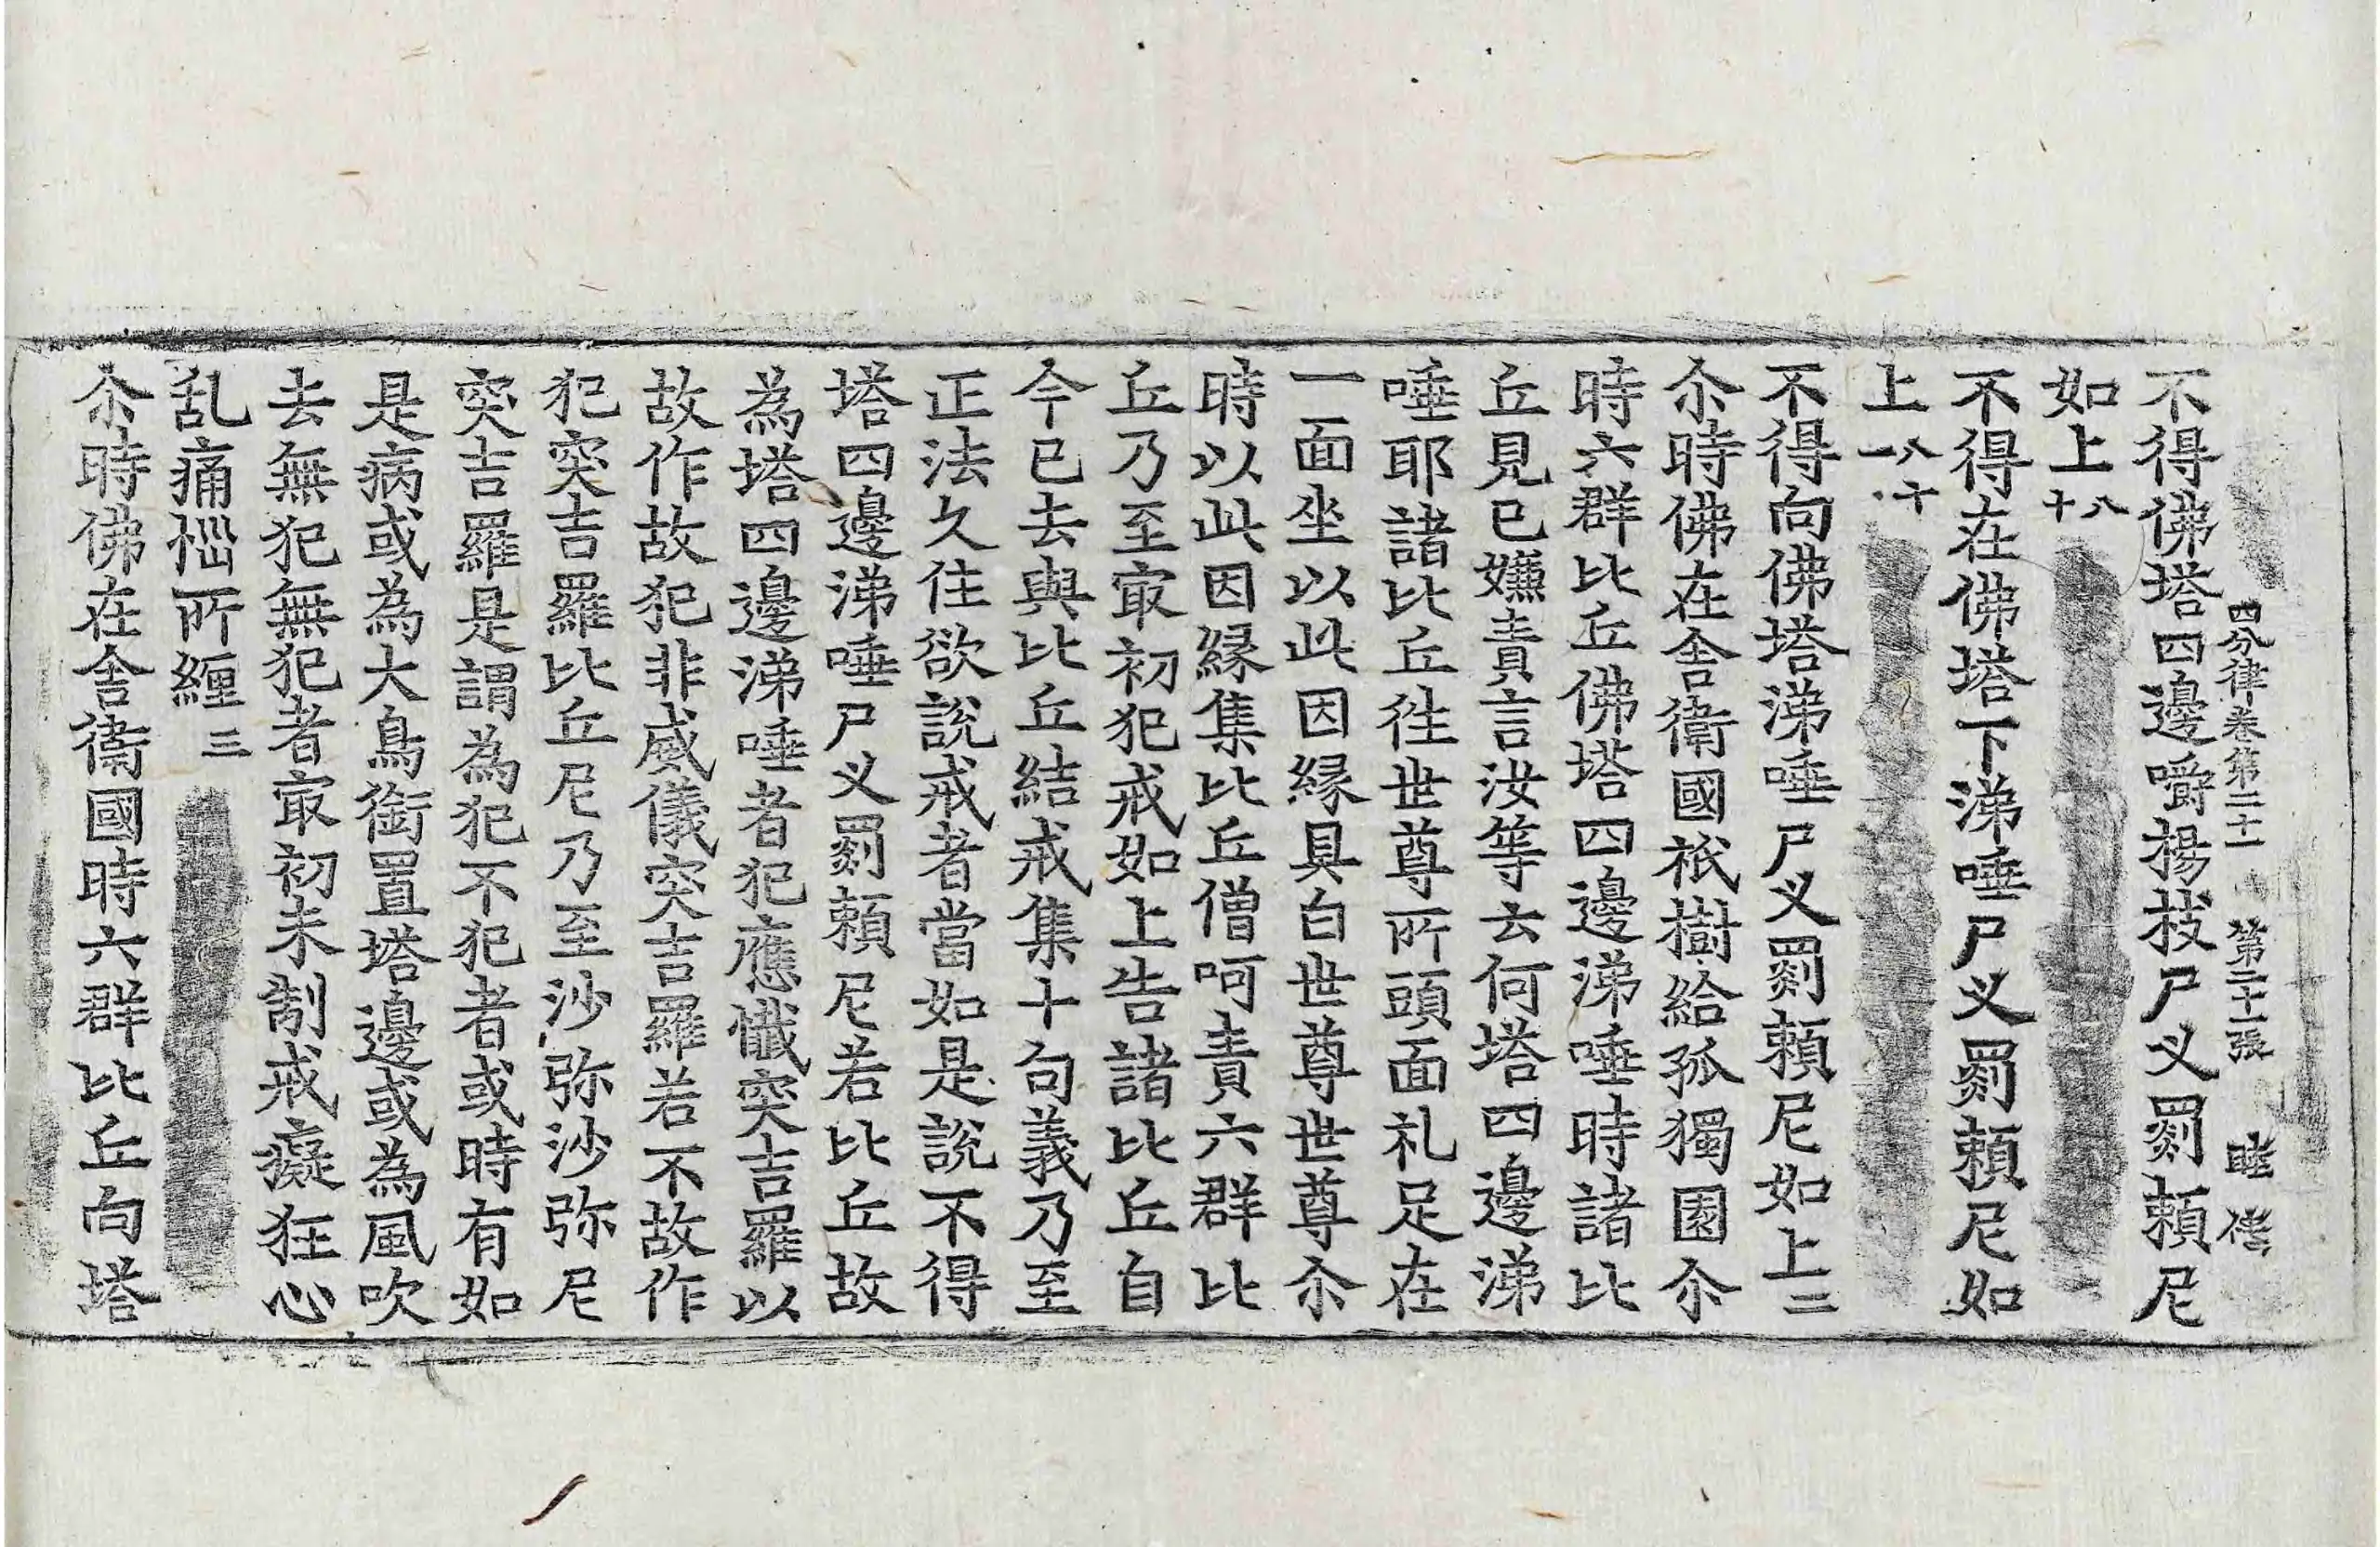 四分律卷第二十一　第二十一張　睦
不得佛塔四邊嚼楊枝尸叉罽賴尼
如上八十
不得在佛塔下涕唾尸叉罽賴尼如
上八十一
不得向佛塔涕唾尸叉罽賴尼如上二
尒時佛在舍衛國祇樹給孤獨園尒
時六群比丘佛塔四邊涕唾時諸比
丘見已嫌責言汝等云何塔四邊涕
唾耶諸比丘徃世尊所頭面礼足在
一面坐以此因緣具白世尊世尊尒
時以此因緣集比丘僧呵責六群比
丘乃至㝡初犯戒如上告諸比丘自
今已去與比丘結戒集十句義乃至
正法久住欲說戒者當如是說不得
塔四邊涕唾尸叉罽賴尼若比丘故
為塔四邊涕唾者犯應懺突吉羅以
故作故犯非威儀突吉羅若不故作
犯突吉羅比丘尼乃至沙弥沙弥尼
突吉羅是謂為犯不犯者或時有如
是病或為大鳥銜置塔邊或為風吹
去無犯無犯者㝡初未制戒癡狂心
乱痛惱所纏三
尒時佛在舍衛國時六群比丘向塔